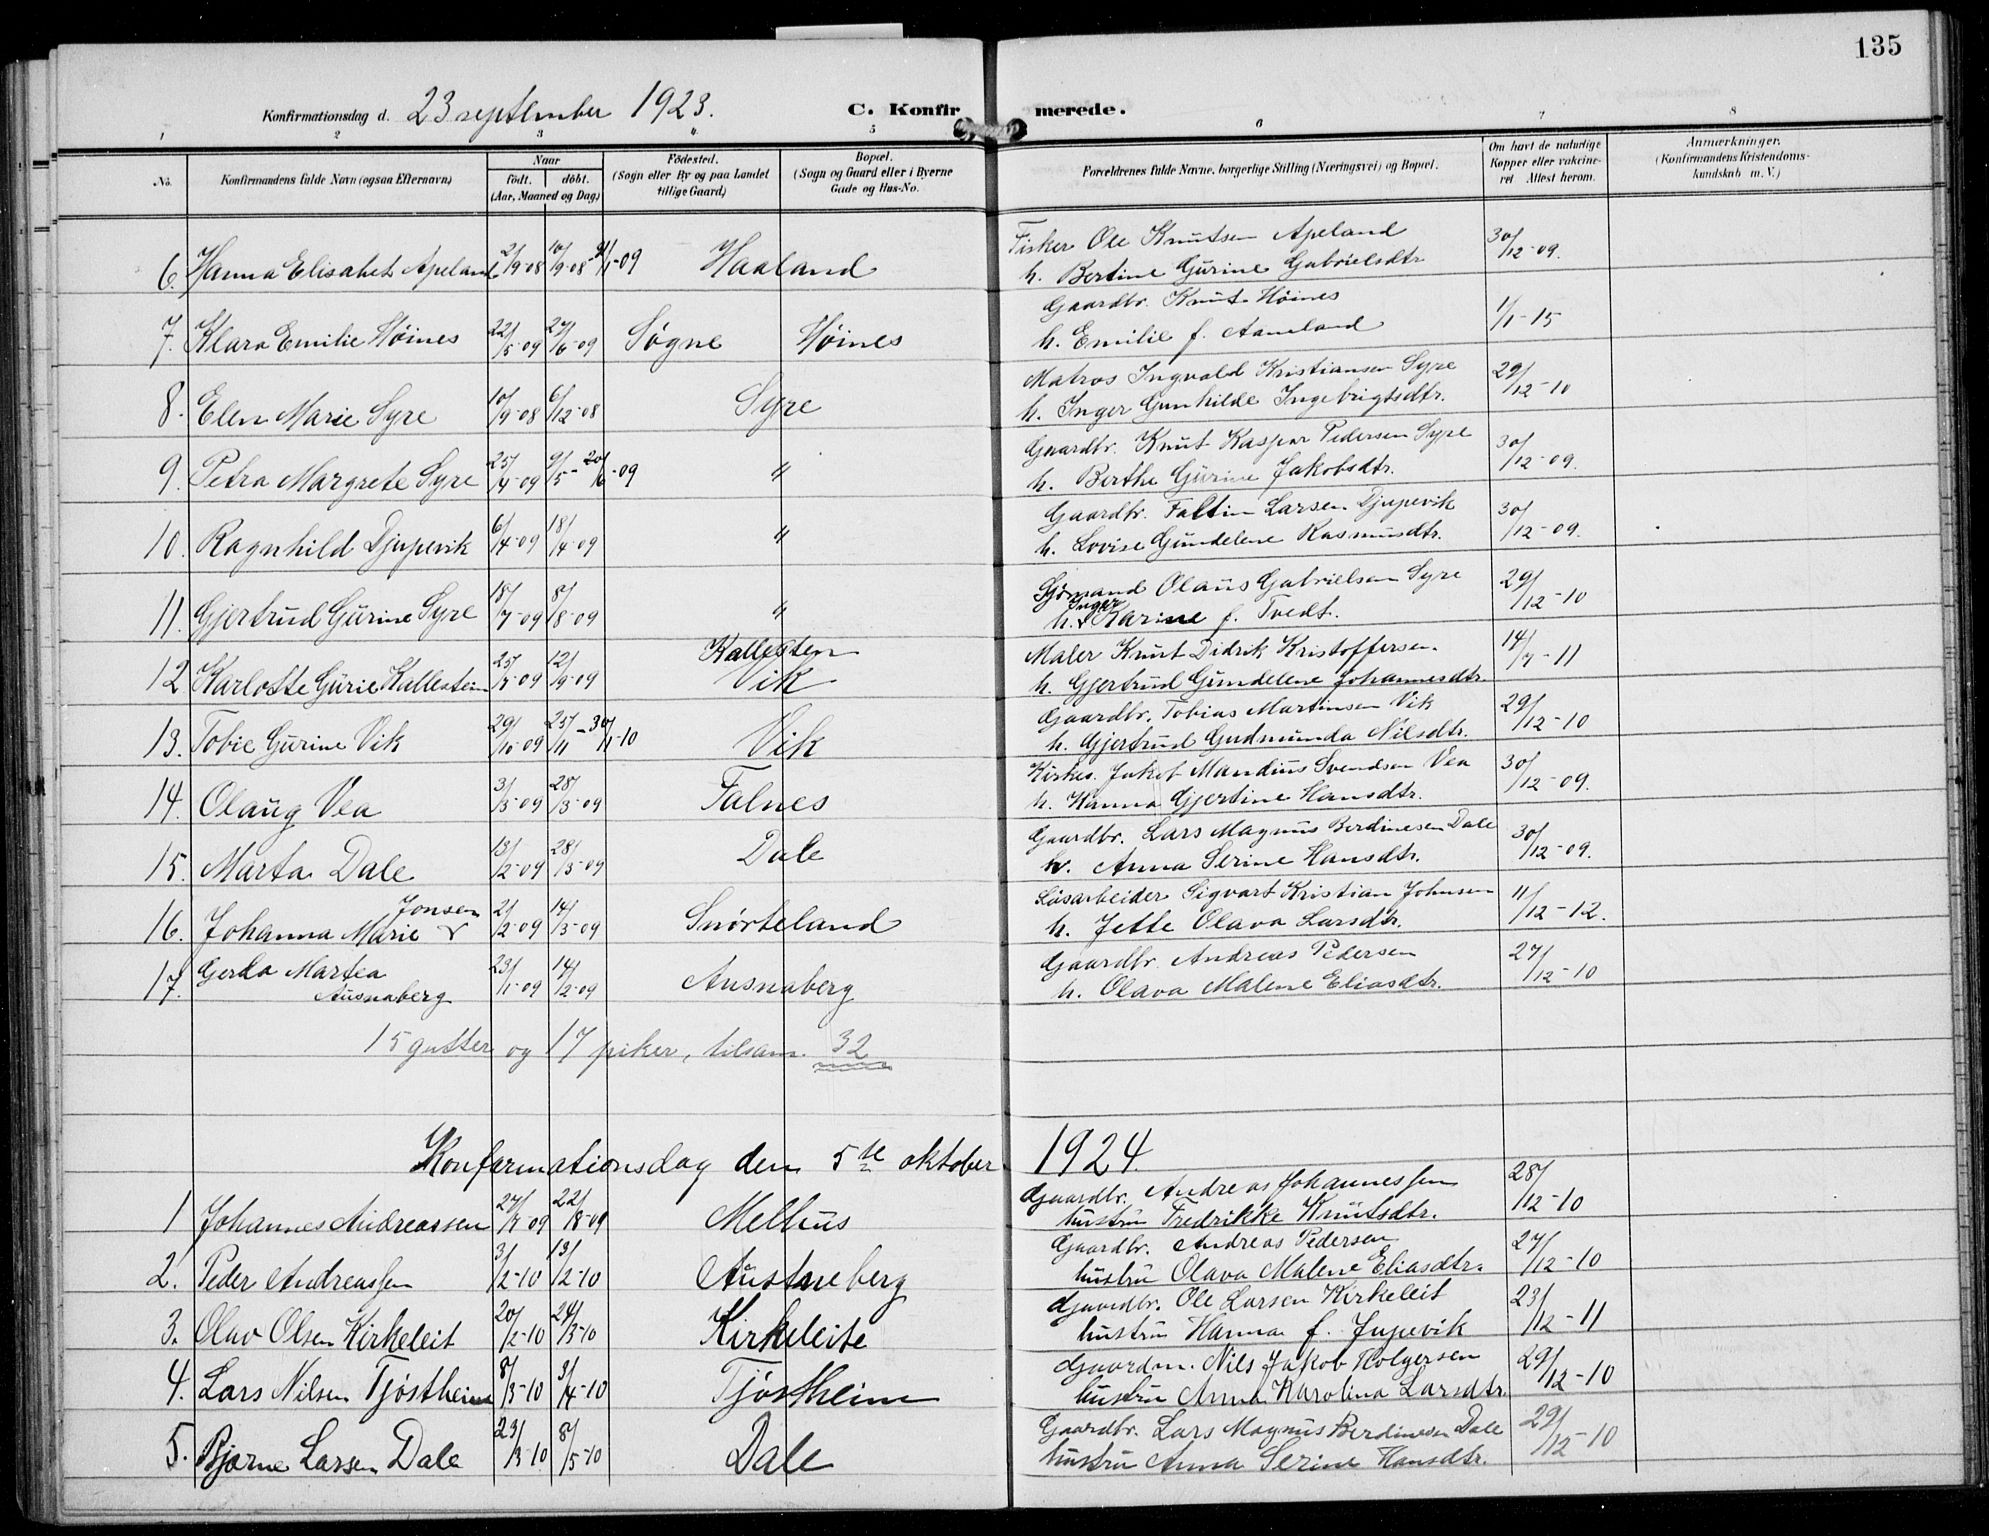 135
Konfirmationsdag d. 23 september 1923. C. Konfirmerede.
1 2 3 4 5 6 7 8
No. Konfirmandens fulde Navn (ogsaa Efternavn) Naar født. døbt. (Aar, Maaned og Dag) Fødested. (Sogn eller By og paa Landet tillige Gaard) Bopæl. (Sogn og Gaard eller i Byerne Gade og Hus-No. Forældrenes fulde Navne, borgerlige Stilling (Næringsvei) og Bopæl. Om havt de naturlige Kopper eller vakcineret Attest herom. Anmærkninger. (Konfirmandens Kristendomskundskab m. V.)
6. Hanna Elisabet Apeland 2/9-08 10/9-08 - /1-09 Haaland Fisker Ole Knutsen Apeland 30/12-09.
h. Bertine Gurine Gabrielsdtr
7. Klara Emilie Høines 22/5-09 27/6-09 Søgne Høines Gaardbr. Knut Høines 1/1-15
h. Emilie f. Aameland
8. Elen Marie Syre 10/9-08 6/12-08 Syre Matros Ingvald Kristiansen Syre 29/12-10
h. Inger Gunhilde Ingebrigtsdtr.
9. Petra Margrete Syre 25/4-09 9/5 - 20/6-09 " Gaardbr. Knut Kaspar Pedersen Syre 30/12-09.
h. Berthe Gurine Jakobsdtr.
10. Ragnhild Djupevik 6/4-09 18/4-09 " Gaardbr. Faltin Larsen Djupevik 30/12-09.
h. Lovise Gundelene Rasmusdtr.
11. Gjertrud Gurine Syre 18/7-09 8/8-09 " Sjømand Olaus Gabrielsen Syre 29/12-10
h. Inger Karine f. Tvedt.
12 Karlotte Gurie Kallestein 25/7-09 12/9-09 Kallesten Vik Maler Knut Didrik Kristoffersen. 14/7-11
h. Gjertrud Gundelene Johannesdtr.
13. Tobie Gurine Vik 29/10-09 25/11 - 30/1-10 Vik Gaardbr. Tobias Martinsen Vik 29/12-10
h. Gjertrud Gudmunda Nilsdtr.
14. Olaug Vea 3/3-09 28/3-09 Falnes Kirkes. Jakob Mandius Svendsen Vea 30/12-09.
h. Hanna Gjertine Hansdtr.
15. Marta Dale 13/2-09 28/3-09 Dale Gaardbr. Lars Magnus Berdinesen Dale 30/12-09.
h. Anna Serine Hansdtr.
16. Johanna Marie Jonsen 2/2-09 14/3-09 Snørteland Løsarbeider Sigvart Kristian Johnsen 11/12-12.
h. Jette Olava Larsdtr.
17. Gerda Martea Ausnaberg 23/1-09 14/2-09 Ausnaberg Gaardbr. Andreas Pedersen 27/12-10
h. Olava Malene Eliasdtr.
15 gutter og 17 piker, tilsam. 32
Konfirmationsdag den 5te oktober 1924.
1 Johannes Andreassen 27/7-09 22/8-09 Melhus Gaardbr. Andreas Johannessen 28/12-10
hustru Fredrikke Knutsdtr.
2. Peder Andreassen 3/2-10 13/2-10 Austneberg Gaardbr. Andreas Pedersen 27/12-10
hustru Olava Malene Eliasdtr.
3. Olav Olsen Kirkeleit 20/2-10 24/3-10 Kirkeleite Gaardbr. Ole Larsen Kirkeleit 23/12-11
hustru Hanna f. Jupevik
4. Lars Nilsen Tjøstheim 8/3-10 3/4-10 Tjøstheim Gaardm. Nils Jakob Holgersen 29/12-10
hustru Anna Karolina Larsdtr.
5. Bjarne Larsen Dale 23/3-10 8/5-10 Dale Gaardbr. Lars Magnus Berdinesen Dale 29/12-10
hustru Anna Serine Hansdtr.